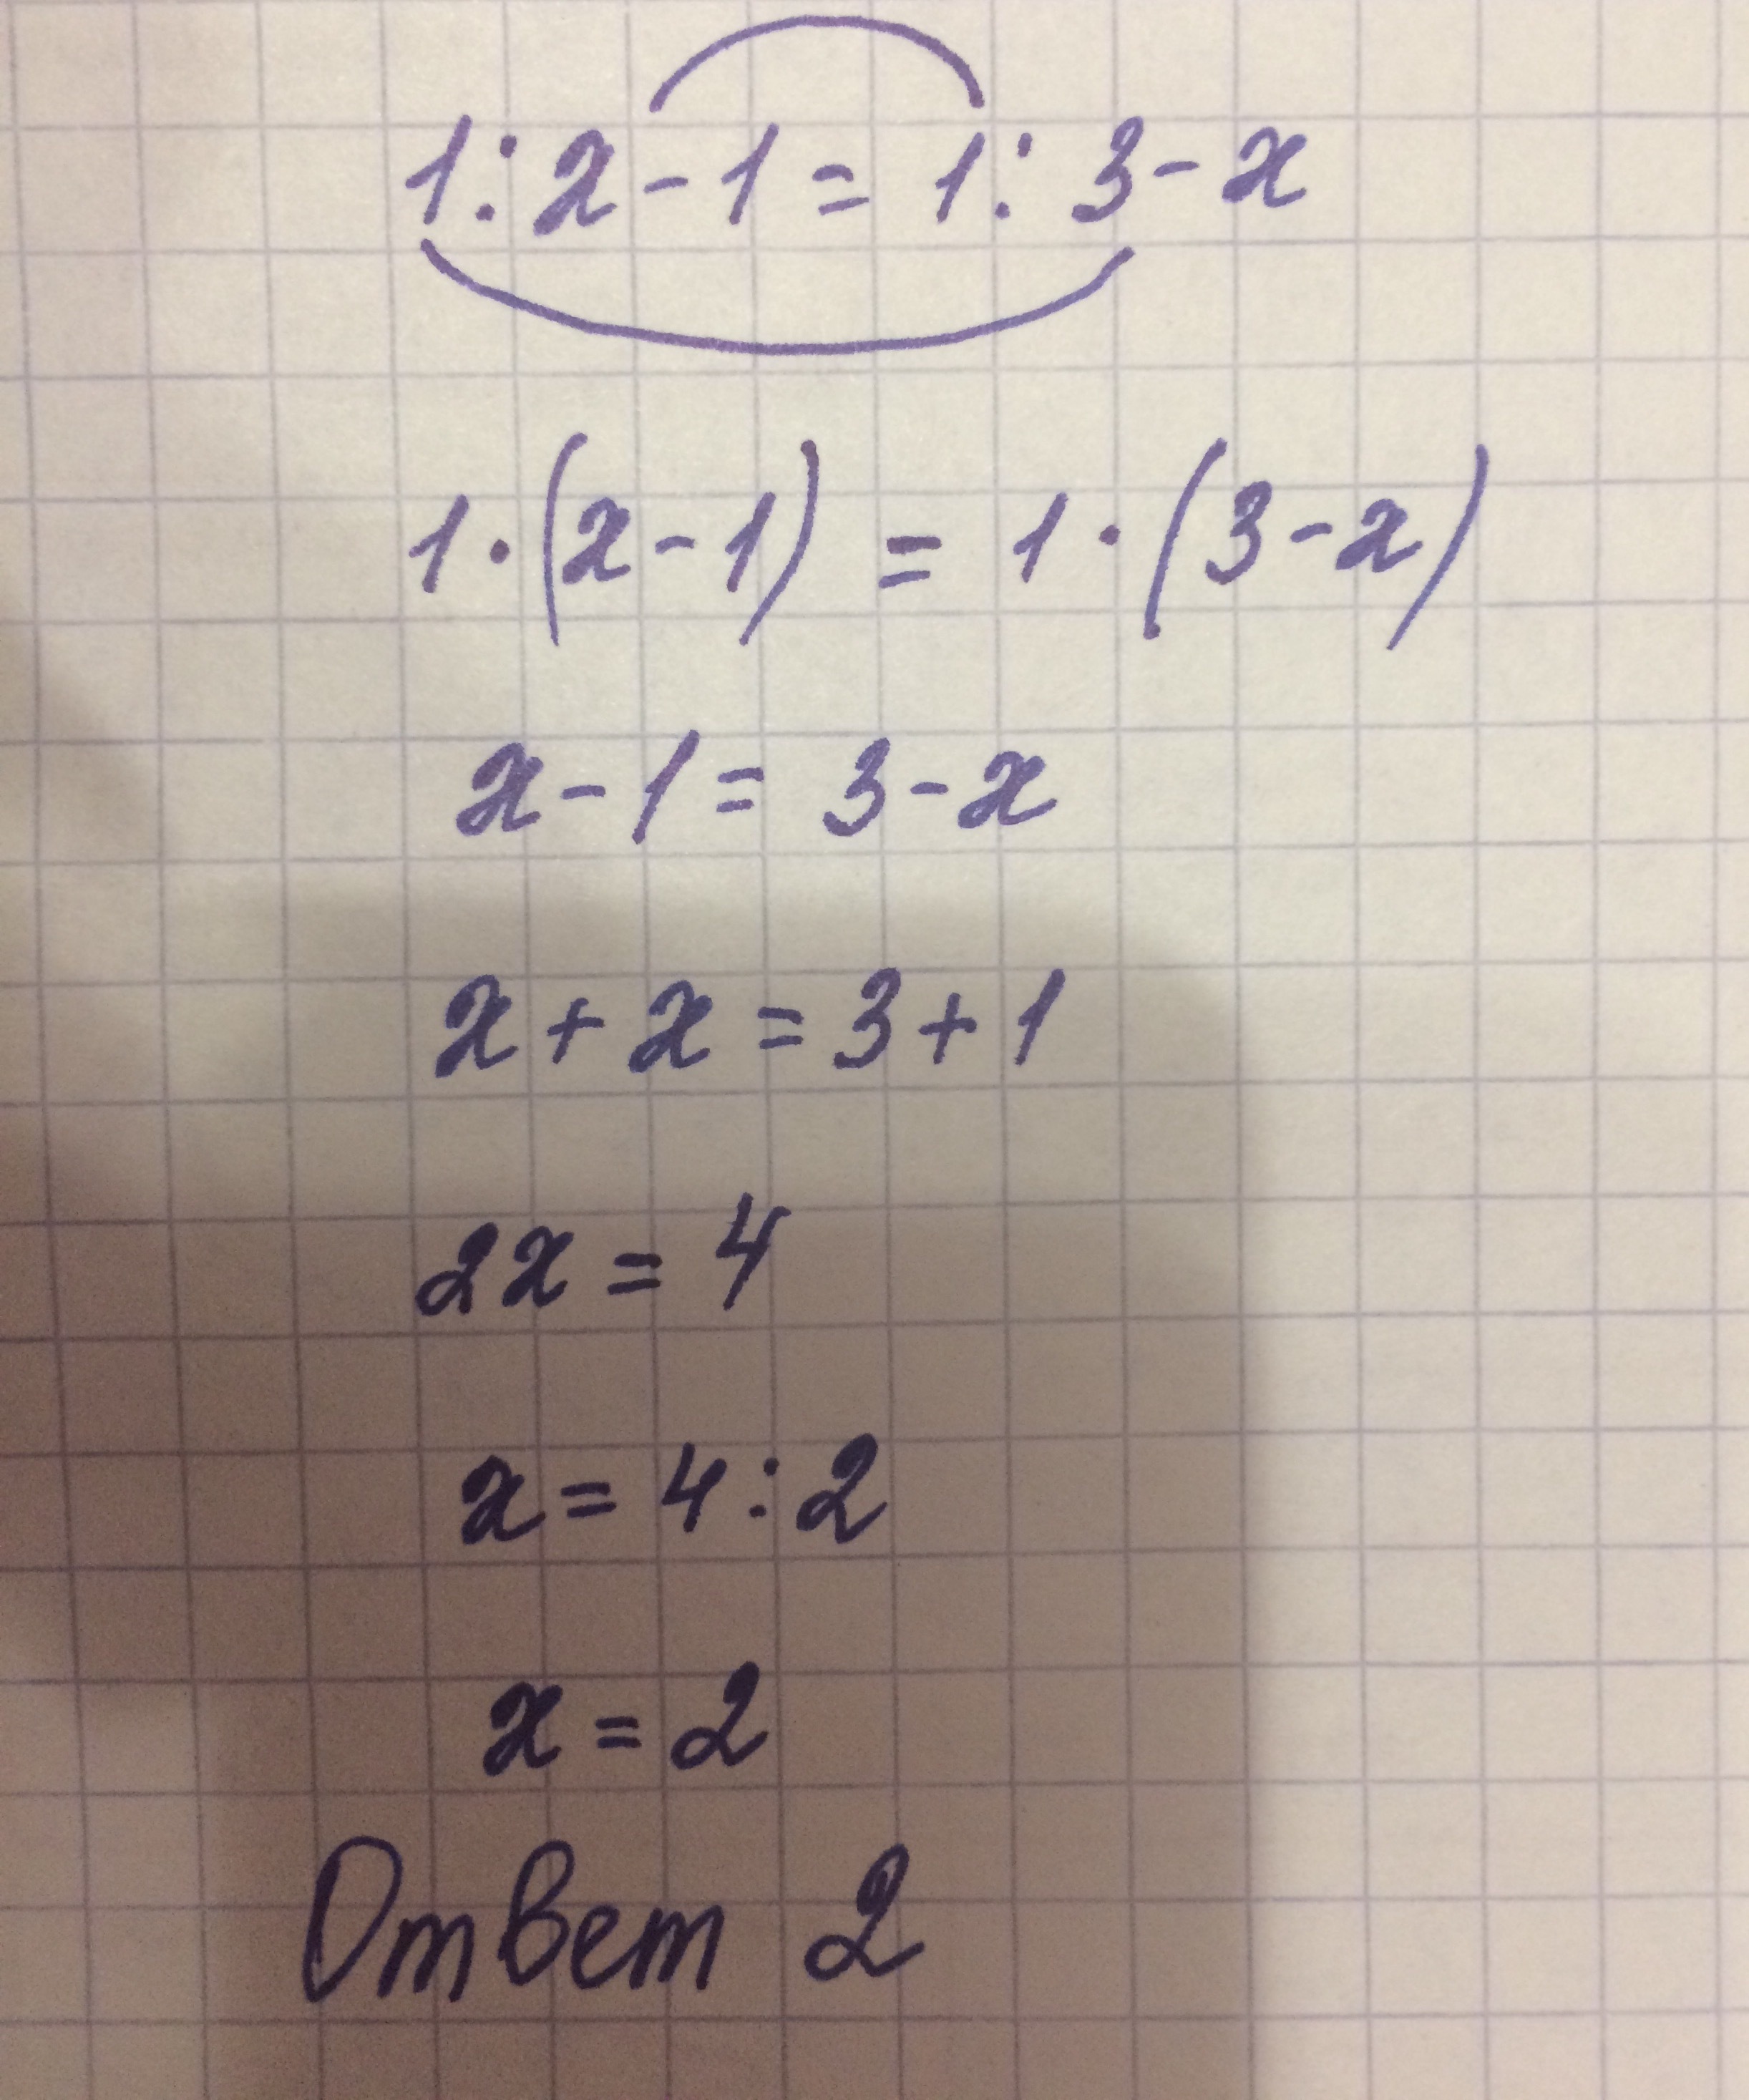 1 : x - 1 = 1 : 3 - x
1 · (x - 1) = 1 · (3 - x)
x - 1 = 3 - x
x + x = 3 + 1
2x = 4
x = 4 : 2
x = 2
Ответ 2